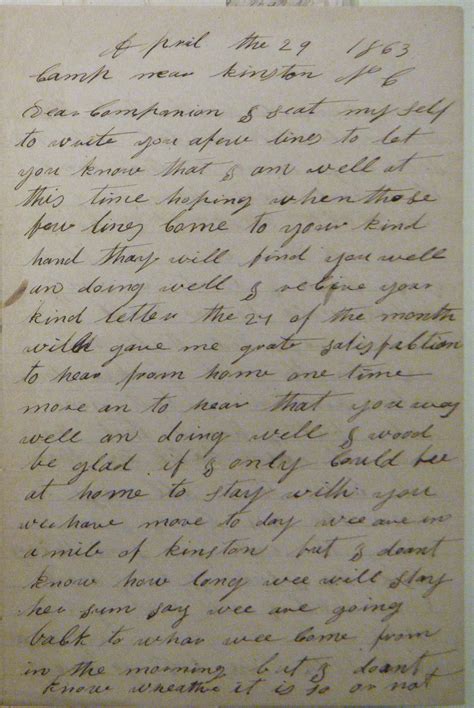 April the 29 1863
Camp near kinston N C
Dear Companion I seat my self
to write you a few lines to let
you know that I am well at
this time hoping when these
few lines Come to your kind
hand thay will find you well
an doing well I recive your
kind letter the 21 of the month
will gave me grate satisfaction
to hear from home one time
more an to hear that you was
well an doing well I wood
be glad if I only Could bee
at home to stay with you
wee have move to day wee are in
a mile of kinston but I doant
know how long wee will stay
her sum say wee are going
back to whar wee Come from
in the morning but I doant
know wheather it is so or not